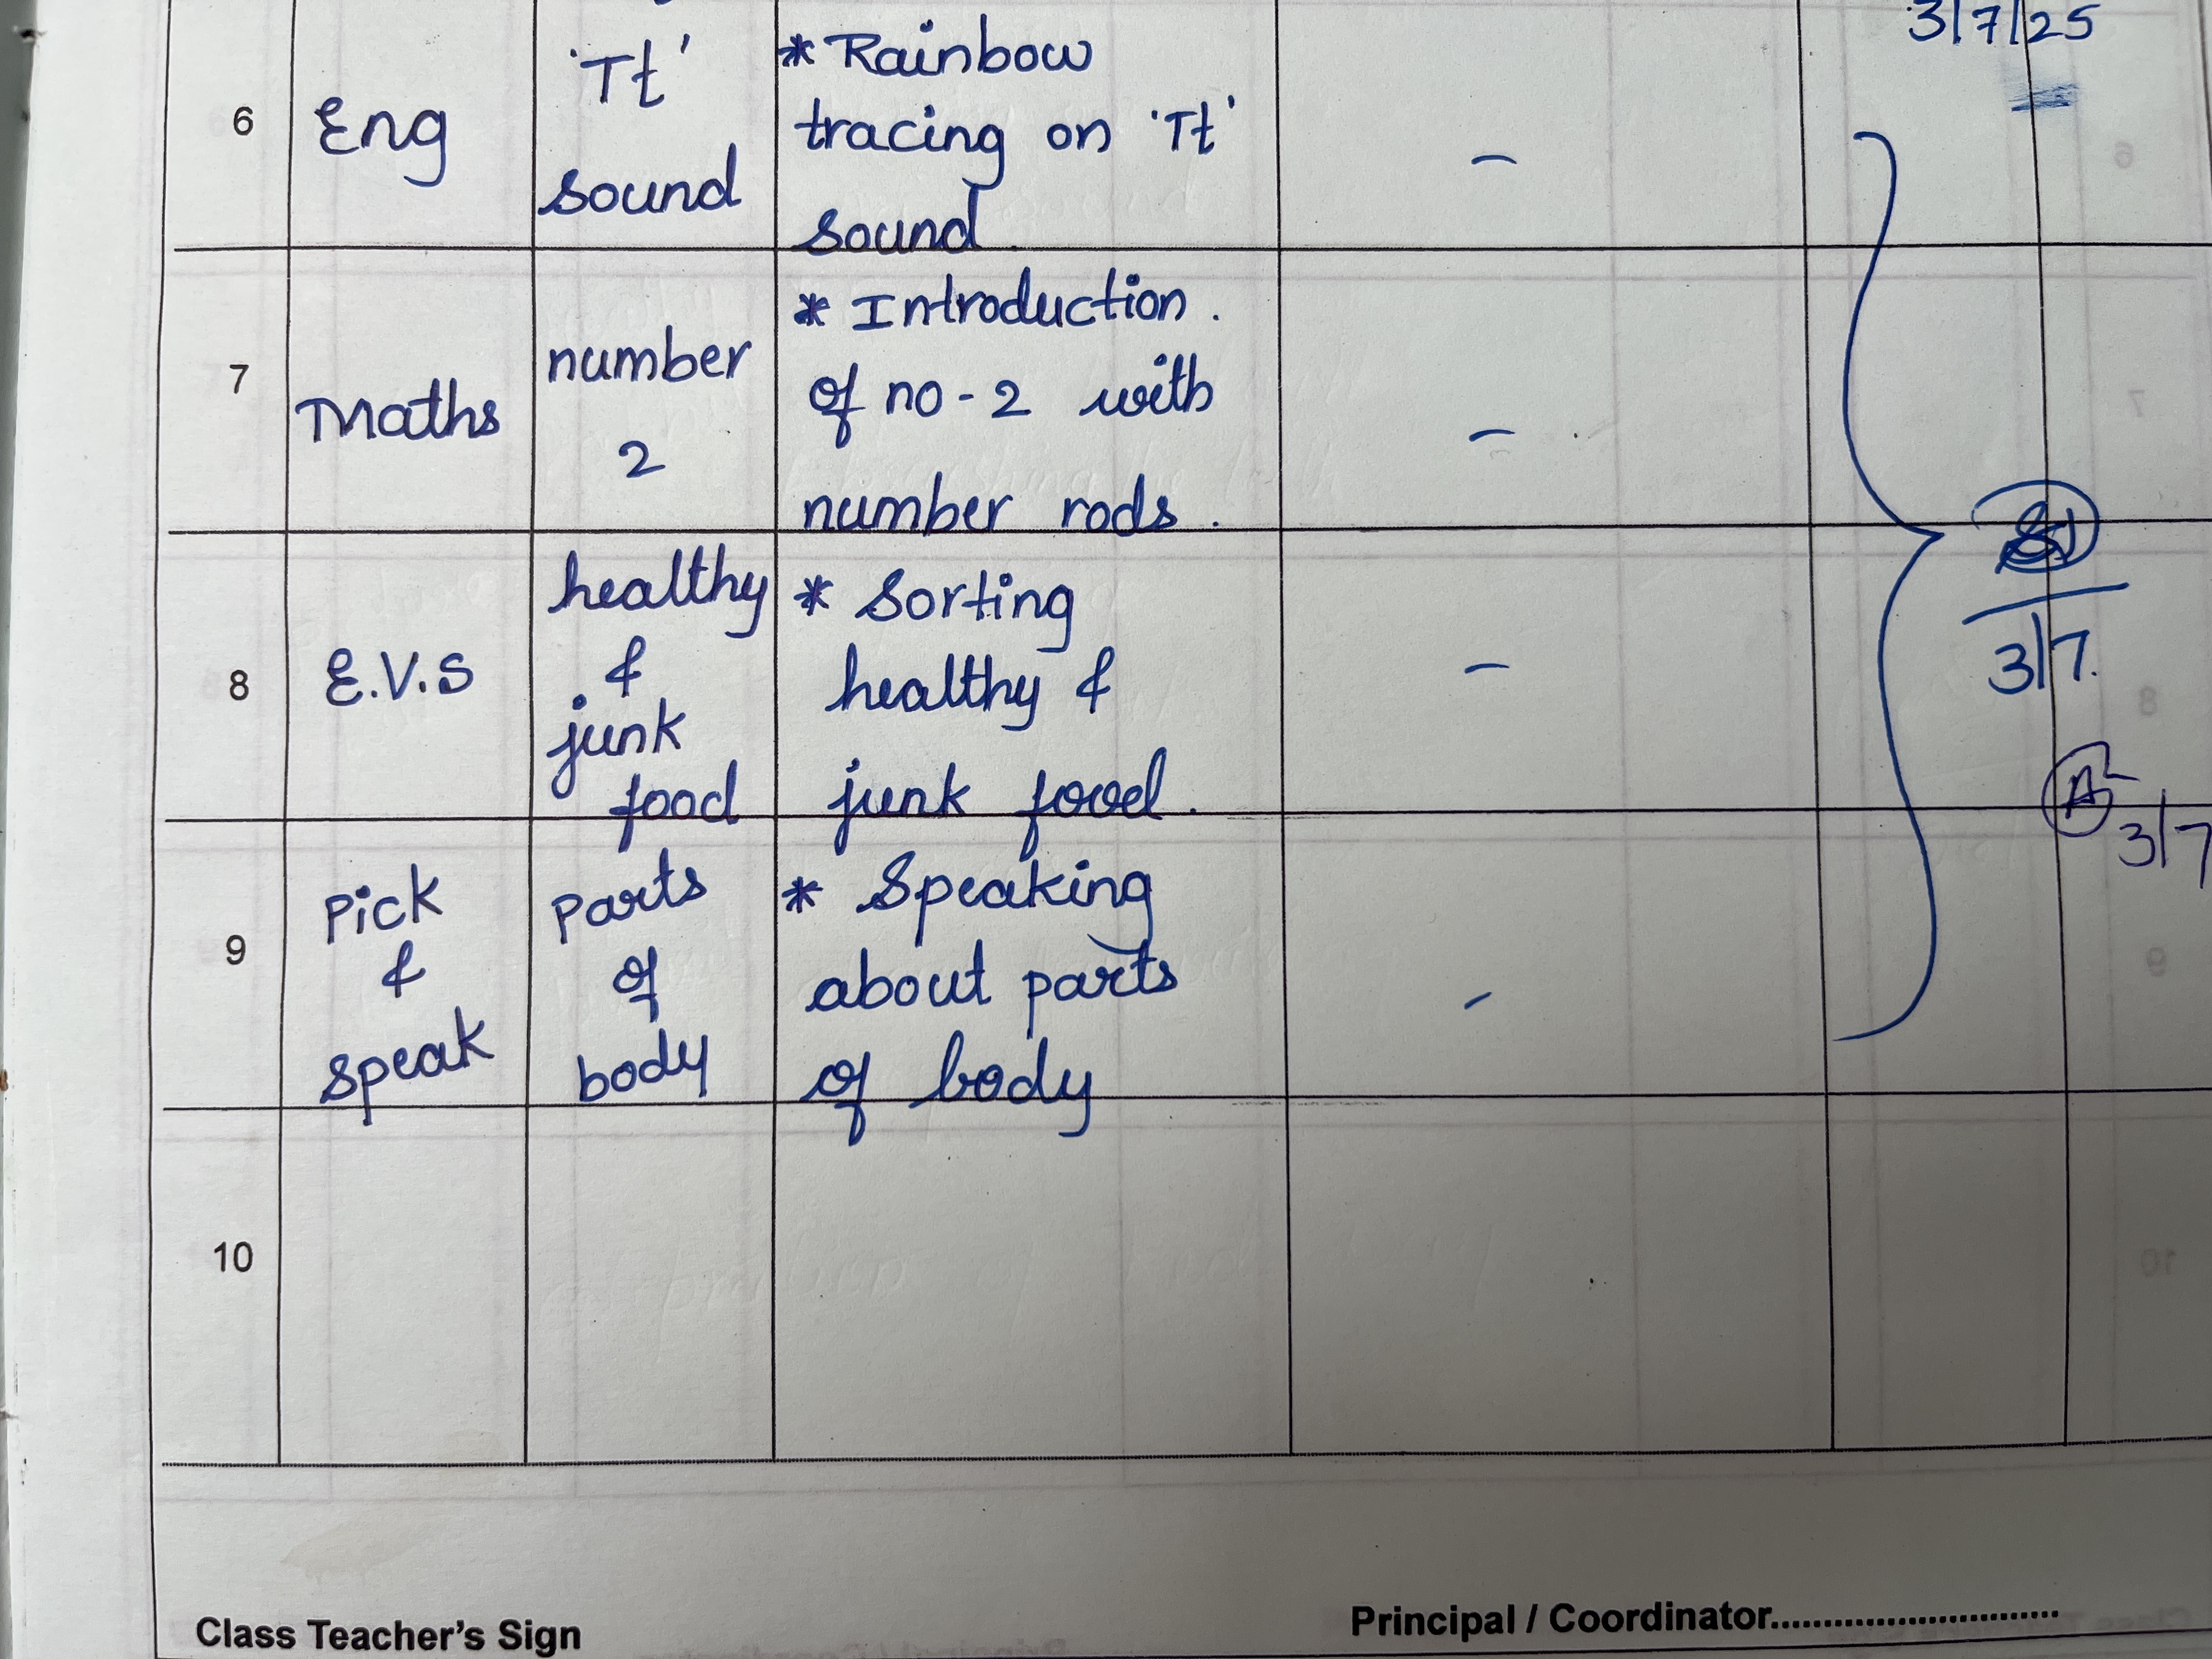 3/7/25
6
Eng
'Tt'
sound
* Rainbow
tracing on 'Tt'
sound.
-
7
Maths
number
2
* Introduction.
of no-2 with
number rods.
-
8
E.V.S
healthy
&
junk
food
* Sorting
healthy &
junk food.
-
3/7.
3/7
9
Pick
&
speak
Parts
of
body
* Speaking
about parts
of body
-
10
Class Teacher's Sign
Principal / Coordinator............................